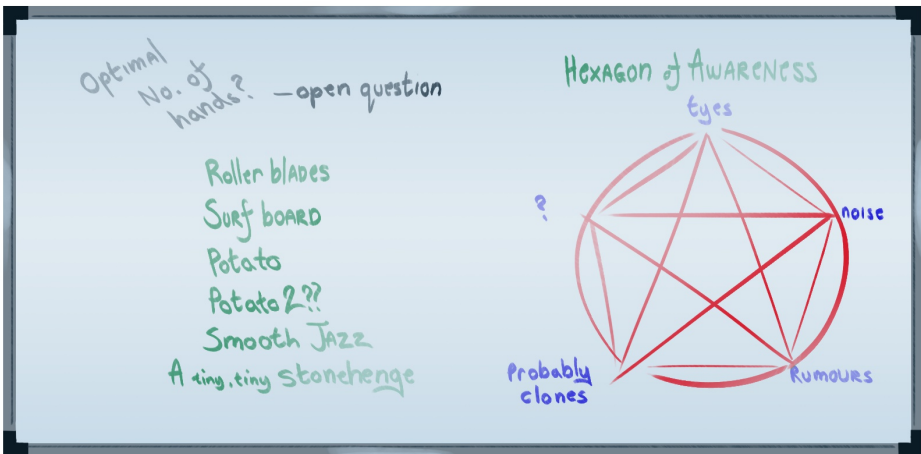 Optimal
No. of
hands? — open question
Roller blades
Surf board
Potato
Potato 2??
Smooth Jazz
A tiny, tiny Stonehenge
Hexagon of Awareness
Eyes
?
noise
Probably
clones
Rumours